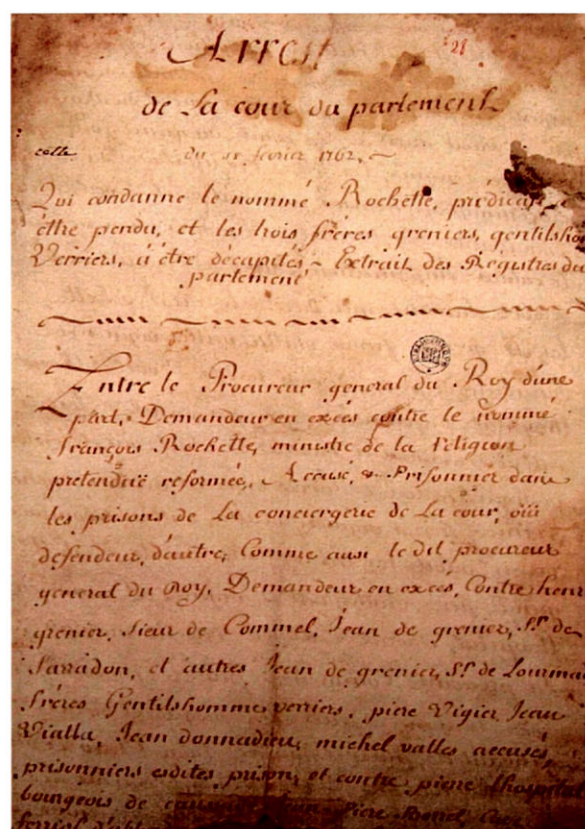 Arrest
21
de la cour du parlement
du 18 fevrier 1762,
Qui condanne le nommé Rochette, prédican
être pendu, et les trois frères greniers, gentilsho
Verriers, a être décapités - Extrait des Registres du
parlement
Entre le Procureur general du Roy d'une
part, Demandeur en excés contre le nommé
françois Rochette, ministre de la religion
pretenduë reformée, Accusé, & Prisonnier dans
les prisons de La conciergerie de La cour, oüi
defendeur, d'autre, Comme ausi le dit procureur
general du Roy, Demandeur en excés, Contre henri
grenier, Sieur de Commel, Jean de grenier, Sr. de
Sarradon, et autres Jean de grenier, Sr. de Lourmad
frères Gentilshomme verriers, piere Vigier, Jean
Vialla, Jean donnadieu, michel valles accusés,
prisonniers esdites prison, et contre, pierre l'hospital
bourgeois de piere
ferriol